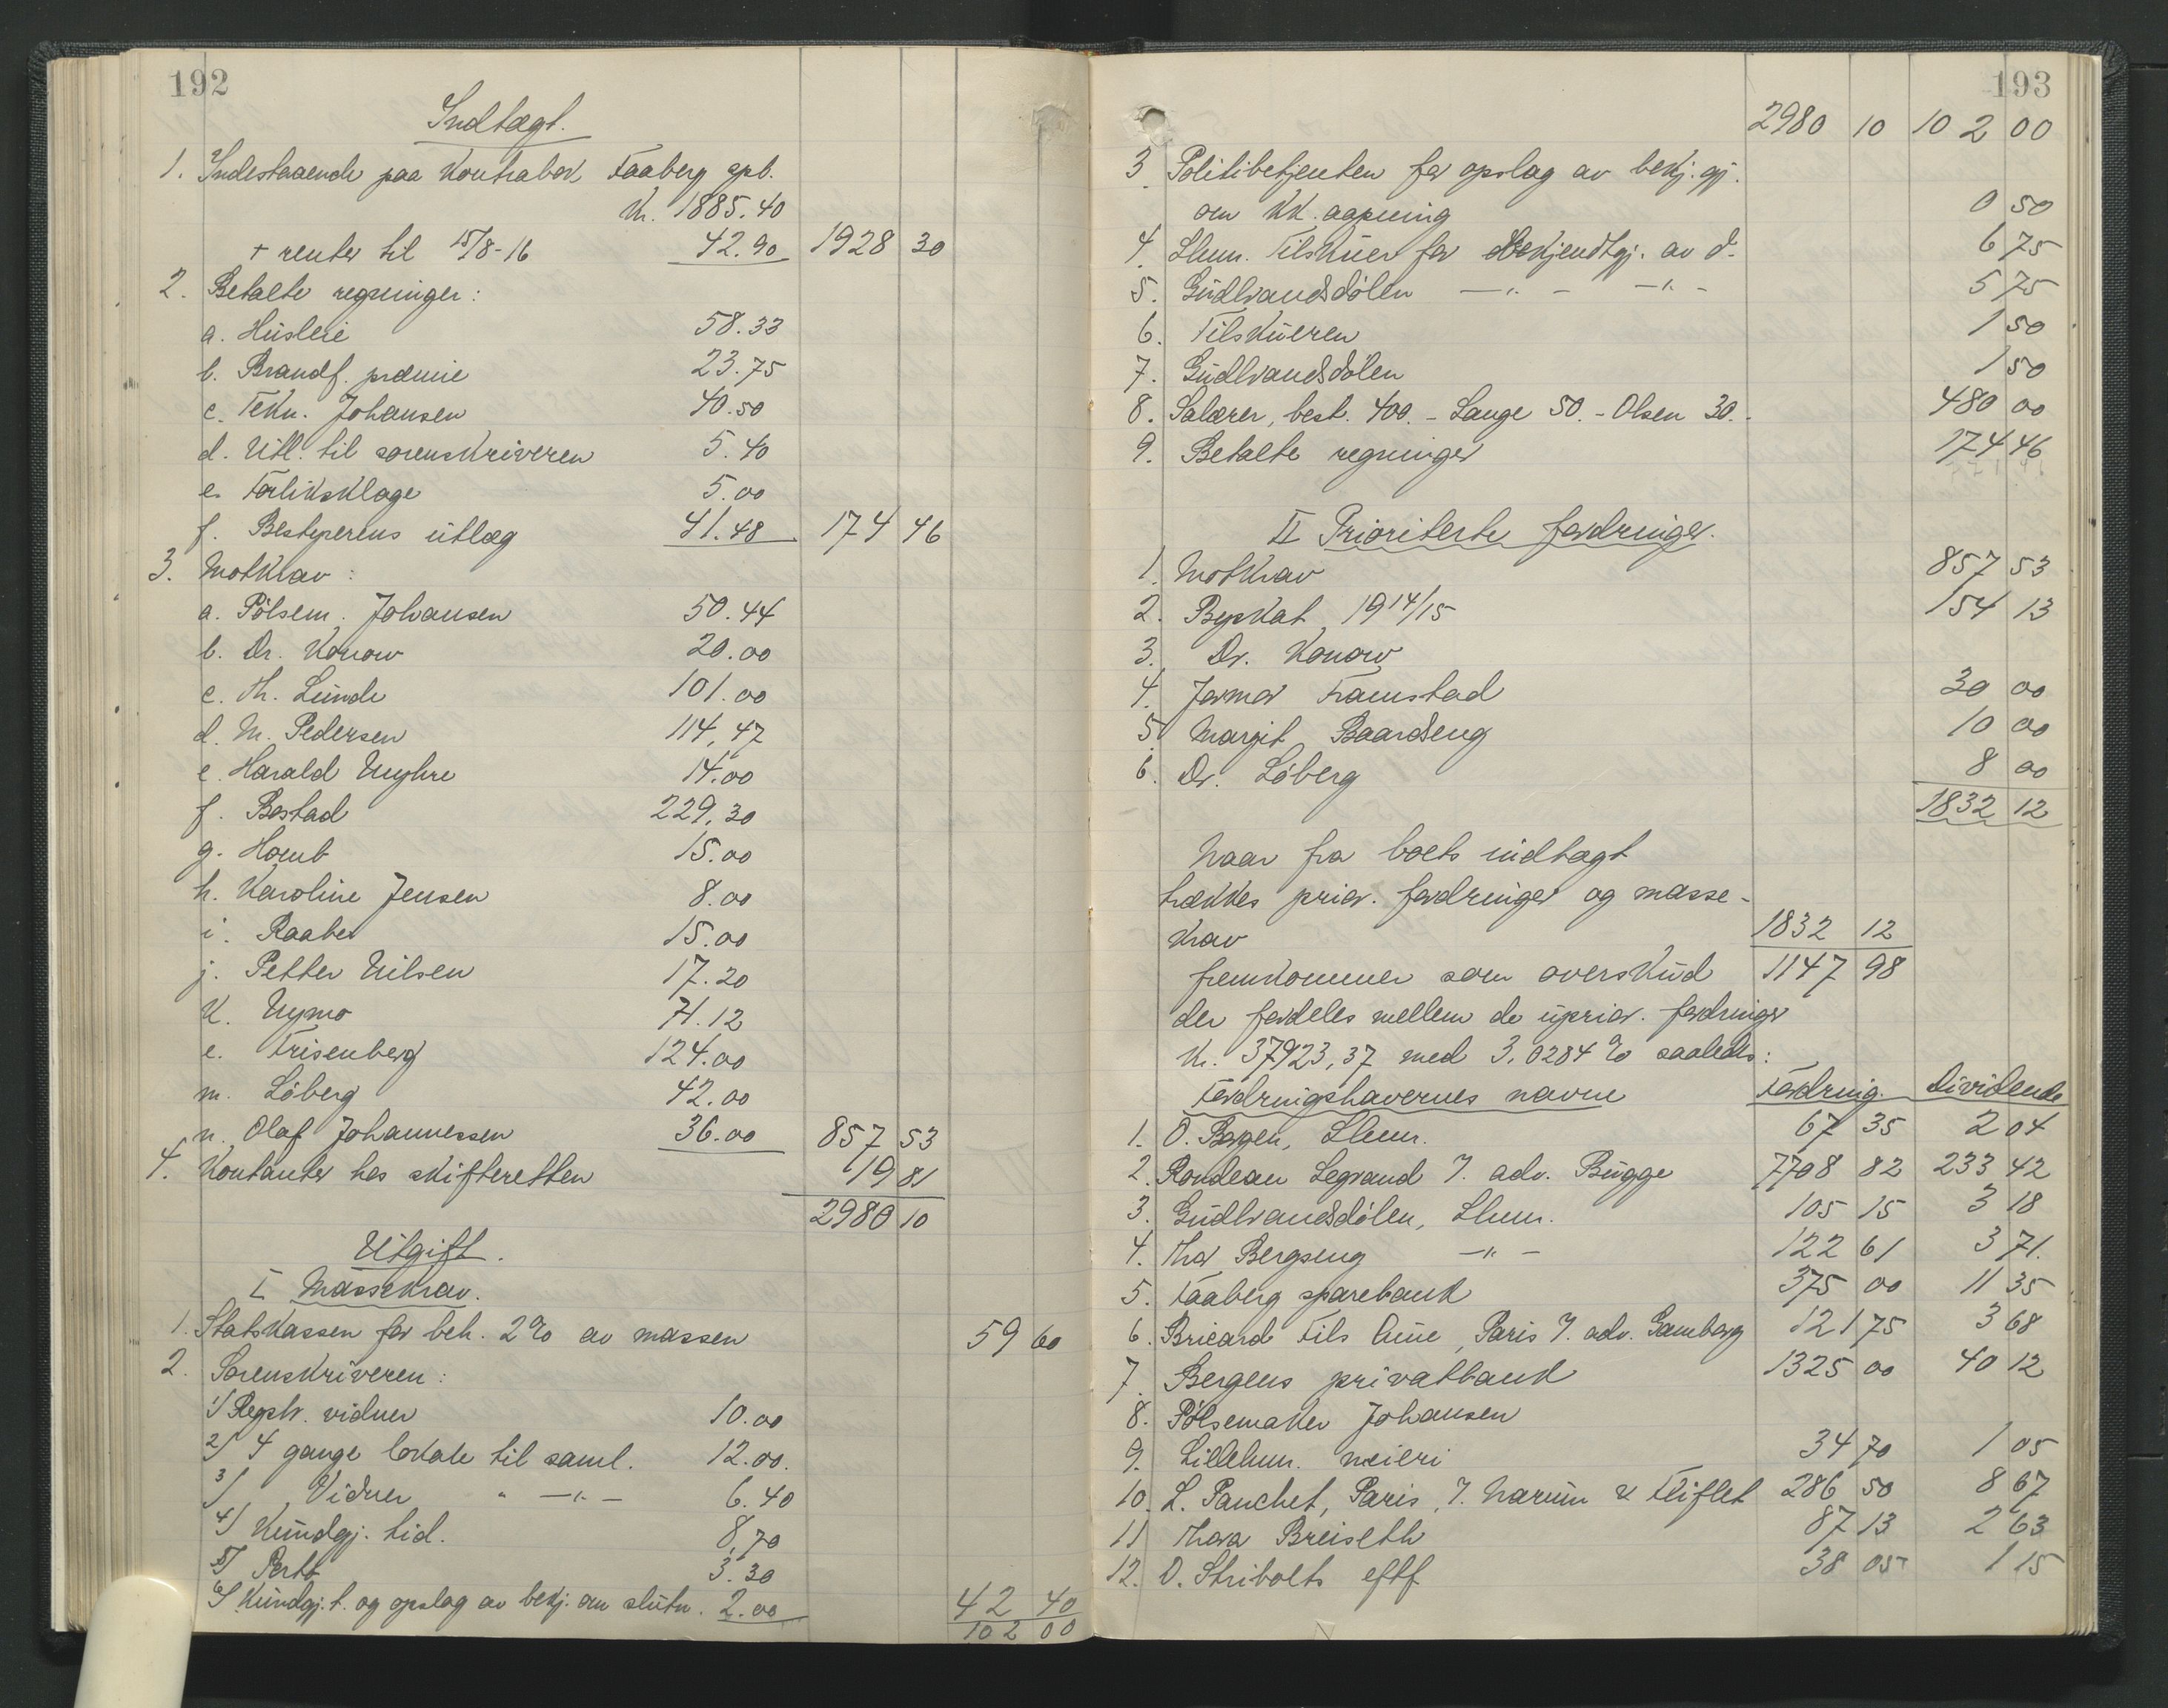 192
Indtægt.
1. Indestaaende paa Kontrabok Faaberg spb.
Kr. 1885.40
+ renter til 15/8-16 42.90 1928 30
2. Betalte regninger:
a. Husleie 58.33
b. Brandf. præmie 23.75
c. Tekn. Johansen 40.50
d. Utl. til sorenskriveren 5.40
e. Forliksklage 5.00
f. Bestyrerens utlæg 41.48 174 46
3. Motkrav:
a. Pölsem. Johansen 50.44
b. Dr. Konow 20.00
c. Th. Lunde 101.00
d. M. Pedersen 114,47
e. Harald Nyhre 14.00
f. Bostad 229,30
g. Homb 15.00
h. Karoline Jensen 8.00
i. Raaber 15.00
j. Petter Nilsen 17.20
k. Nymo 71.12
l. Frisenberg 124.00
m. Löberg 42.00
n. Olaf Johannessen 36.00 857 53
4. Kontanter hos skifteretten 19 81
2980 10
Utgift.
I Massekrav.
1. Statskassen for beh. 2% av massen 59 60
2. Sorenskriveren:
1) Regstr. vidner 10.00
2) 4 gange lokale til saml. 12.00.
3) Vidner " —"— 6.40
4) Kundgj. tid. 8,70
5) Porto 3.30
6) Kundgj. t. og opslag av bekj. om slutn. 2.00 42 40
102 00
193
2980 10 102 00
3. Politibetjenten for opslag av bekj.gj.
om KK. aapning 0 50
4. Lhmr. Tilskuer for bekjendtgj. av d. 6 75
5. Gudbrandsdölen —"— —"— 5 75
6. Tilskueren 1 50
7. Gudbrandsdölen 1 50
8. Salærer, best. 400.- Lange 50.- Olsen 30.- 480 00
9. Betalte regninger 174 46
II Prioriterte fordringer.
1. Motkrav 857 53
2. Byskat 1914/15 154 13
3. Dr. Konow
4. Jormor Framstad 30 00
5 Margit Baardseng 10 00
6. Dr. Löberg 8 00
1832 12
Naar fra boets indtægt
trækkes prior. fordringer og masse-
krav 1832 12
fremkommer som overskud 1147 98
der fordeles mellem de uprior. fordringer
Kr. 37923,37 med 3,0284% saaledes:
Fordringshavernes navne Fordring. Dividende
1. O. Bergen, Lhmr. 67 35 2 04
2. Rondeau Legrand v. adv. Bugge 7708 82 233 42
3. Gudbrandsdölen, Lhmr. 105 15 3 18
4. Thor Bergseng —"— 122 61 3 71.
5. Faaberg sparebank 375 00 11 35
6. Bricard Fils Aine, Paris v. adv. Gamborg 121 75 3 68
7. Bergens privatbank 1325 00 40 12
8. Pölsemaker Johansen
9. Lillehmr. meieri 34 70 1 05
10. L. Panchet, Paris, v. Narum & Fliflet 286 50 8 67
11 Thora Breiseth 87 13 2 63
12. D. Stribolts eftf 38 05 1 15